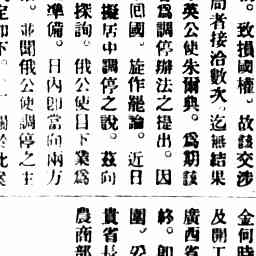 。致損國權。故該交涉
局者接洽數次。迄無結果
英公使朱爾典。爲期該
爲調停辦法之提出。因
回國。旋作罷論。近日
擬居中調停之說。茲向
探詢。俄公使目下業爲
準備。日內卽當向兩方
。並聞俄公使調停之主
定卽下。一關於此案
金何時
及開工
廣西省
終。卽
圍。公
貴省長
農商部